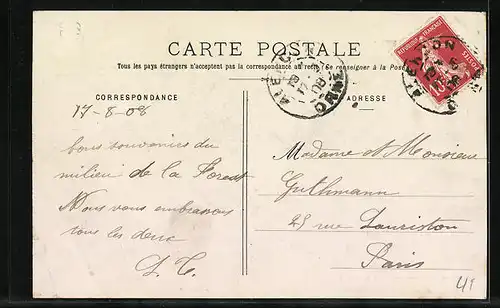 CARTE POSTALE
Tous les pays étrangers n'acceptent pas la correspondance au recto (Se renseigner à la Poste)
CORRESPONDANCE
ADRESSE
17-8-08
Bons souvenirs du
milieu de la Forest
Nous vous embrassons
tous les deux
Madame et Monsieur
Guthmann
25 rue Lauriston
Paris
ALENÇON
ORNE
REPUBLIQUE FRANÇAISE
10